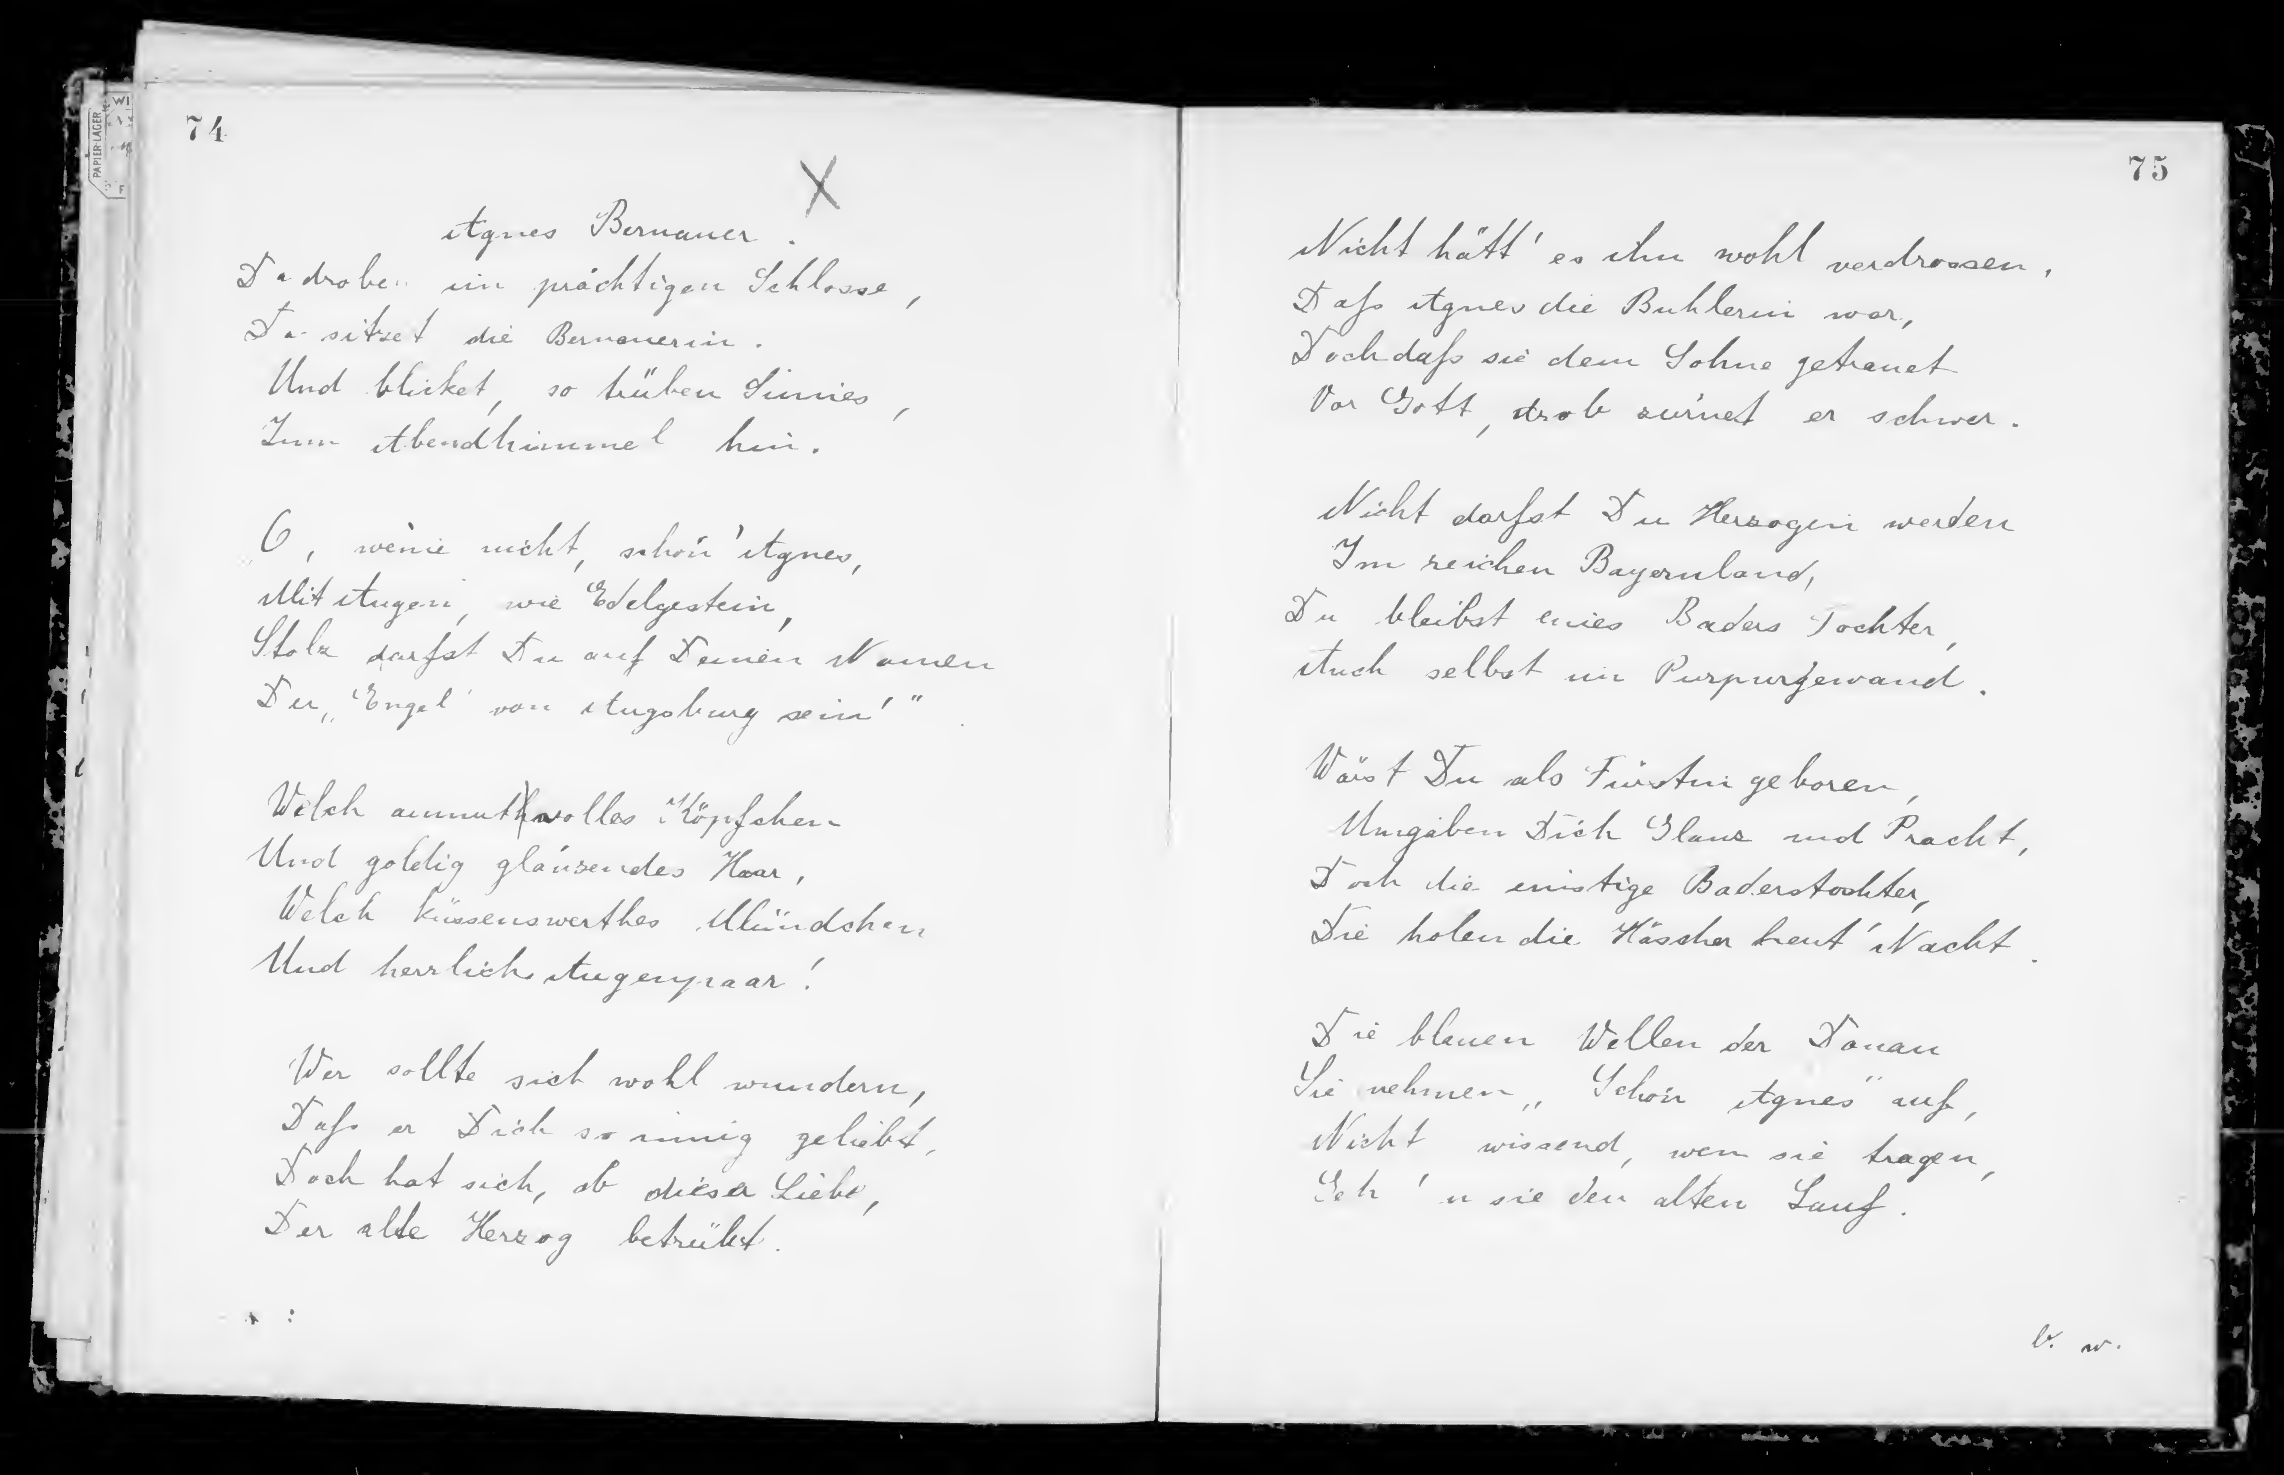 74
Agnes Bernauer.
Da droben im prächtigen Schlosse,
Da sitzet die Bernauerin.
Und blicket, so trüben Sinnes,
Zum Abendhimmel hin.
O, weine nicht, schön' Agnes,
Mit Augen, wie Edelgestein,
Stolz darfst Du auf Deinen Namen
Der „Engel von Augsburg sein!"
Welch anmuthvolles Köpfchen
Und goldig glänzendes Haar,
Welch küssenswerthes Mündchen
Und herrlich Augenpaar!
Wer sollte sich wohl wundern,
Daß er Dich so innig geliebt,
Doch hat sich, ob dieser Liebe,
Der alte Herzog betrübt.
75
Nicht hätt' es ihn wohl verdrossen,
Daß Agnes die Buhlerin war,
Doch daß sie dem Sohne getrauet
Vor Gott, drob zürnet er schwer.
Nicht darfst Du Herzogin werden
Im reichen Bayernland,
Du bleibst eines Baders Tochter,
Auch selbst im Purpurgewand.
Wärst Du als Fürstin geboren,
Umgäben Dich Glanz und Pracht,
Doch die einstige Baderstochter,
Die holen die Häscher heut' Nacht.
Die blauen Wellen der Donau
Sie nehmen „Schön Agnes" auf,
Nicht wissend, wen sie tragen,
Geh'n sie den alten Lauf.
b. w.
PAPIER-LAGER
WI